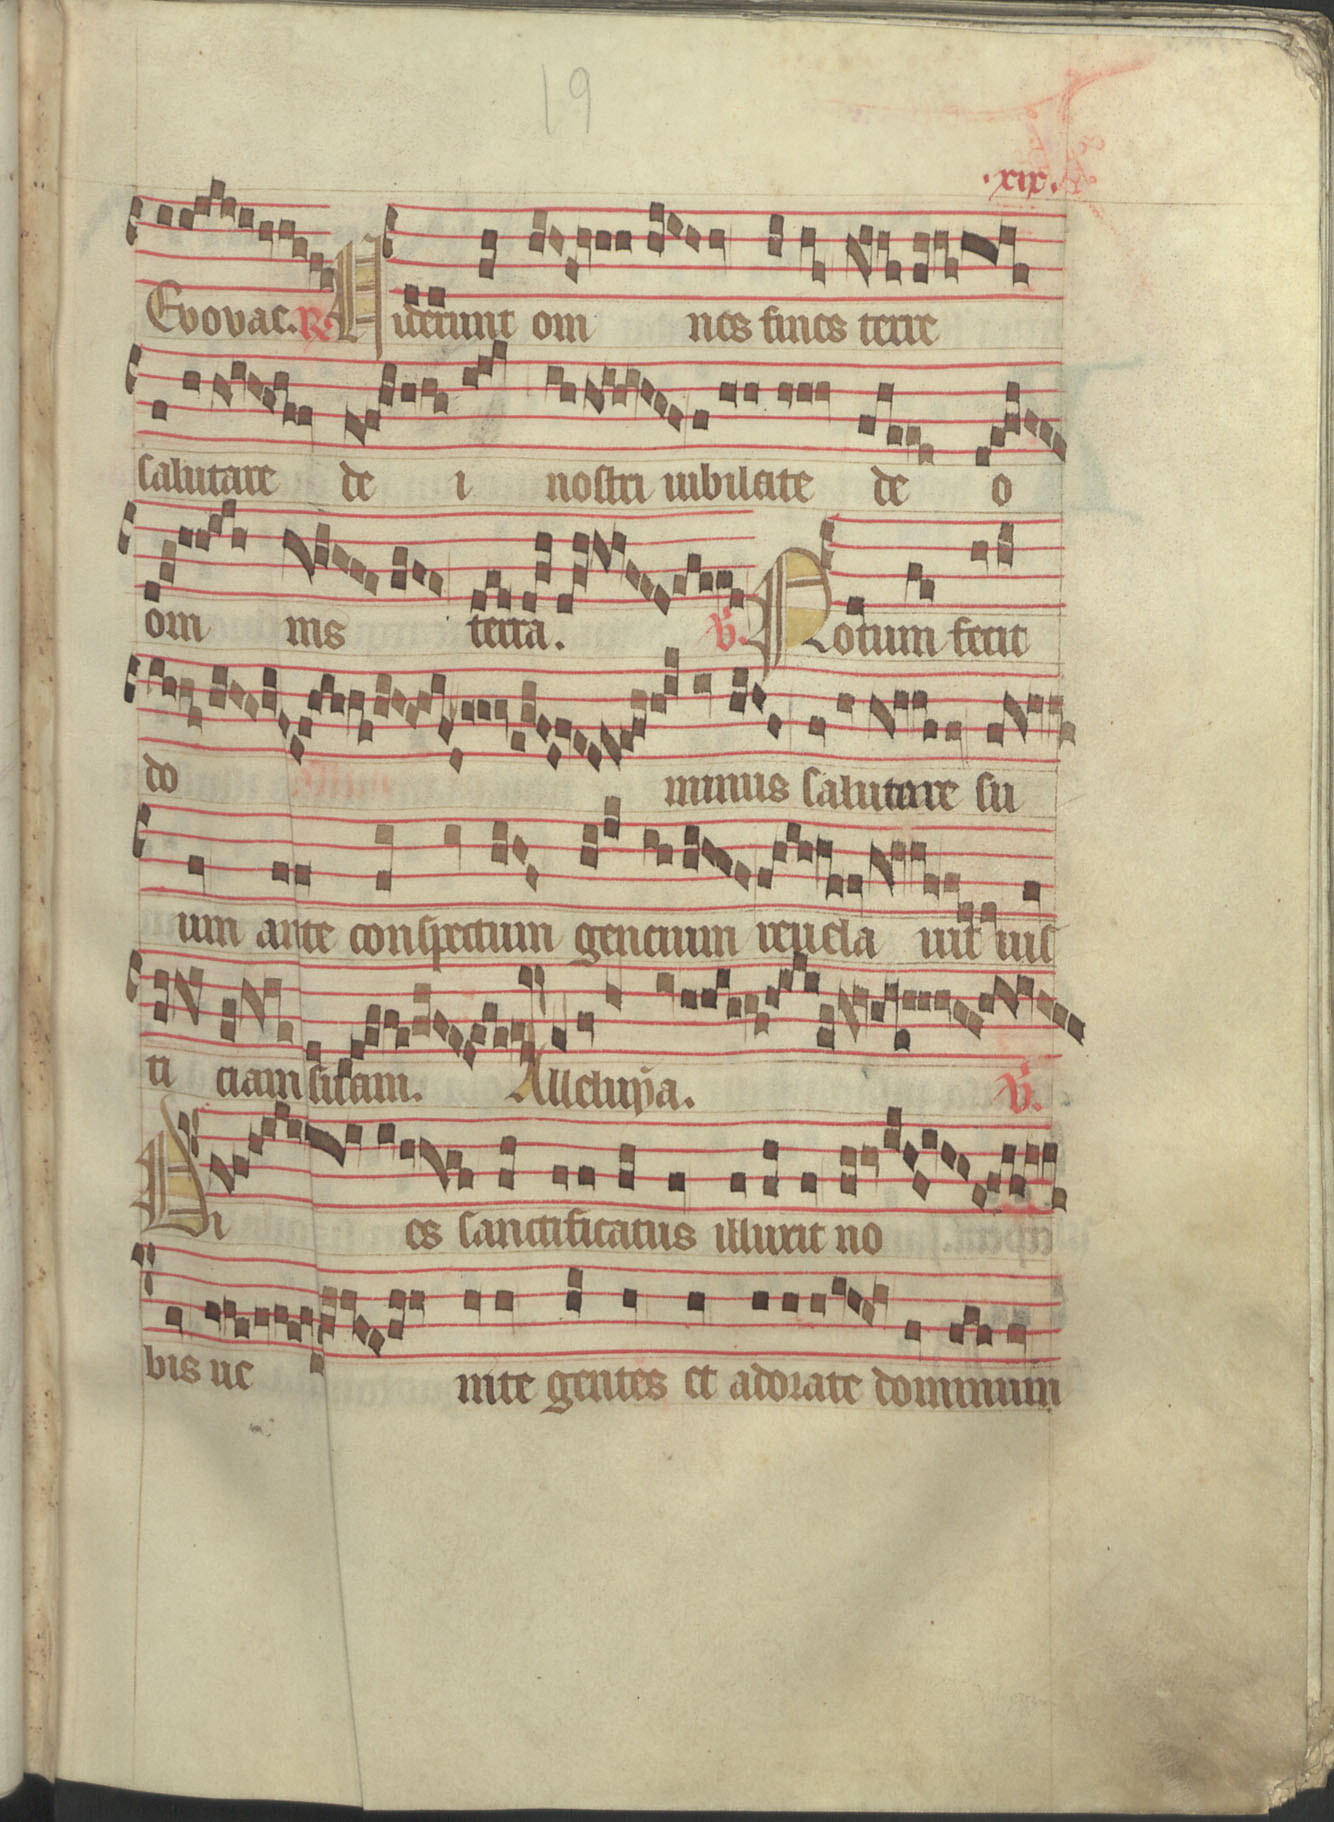 19
.xix.
Evovae. R. Viderunt om nes fines terre
salutare de i nostri iubilate de o
om nis terra. V. Notum fecit
do minus salutare su
um ante conspectum gencium reuela uit ius
ti ciam suam. Alleluya. V.
Di es sanctificatus illuxit no
bis ue nite gentes et adorate dominum